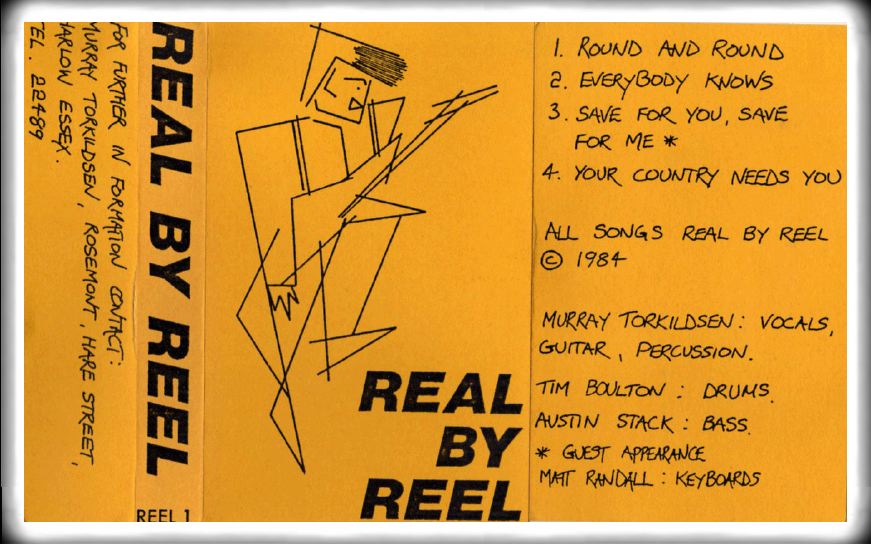 FOR FURTHER IN FORMATION CONTACT:
MURRAY TORKILDSEN, ROSEMONT, HARE STREET,
HARLOW ESSEX.
TEL. 22489
REAL BY REEL
REEL 1
REAL
BY
REEL
1. ROUND AND ROUND
2. EVERYBODY KNOWS
3. SAVE FOR YOU, SAVE
FOR ME *
4. YOUR COUNTRY NEEDS YOU
ALL SONGS REAL BY REEL
© 1984
MURRAY TORKILDSEN: VOCALS,
GUITAR, PERCUSSION.
TIM BOULTON: DRUMS.
AUSTIN STACK: BASS.
* GUEST APPEARANCE
MATT RANDALL: KEYBOARDS